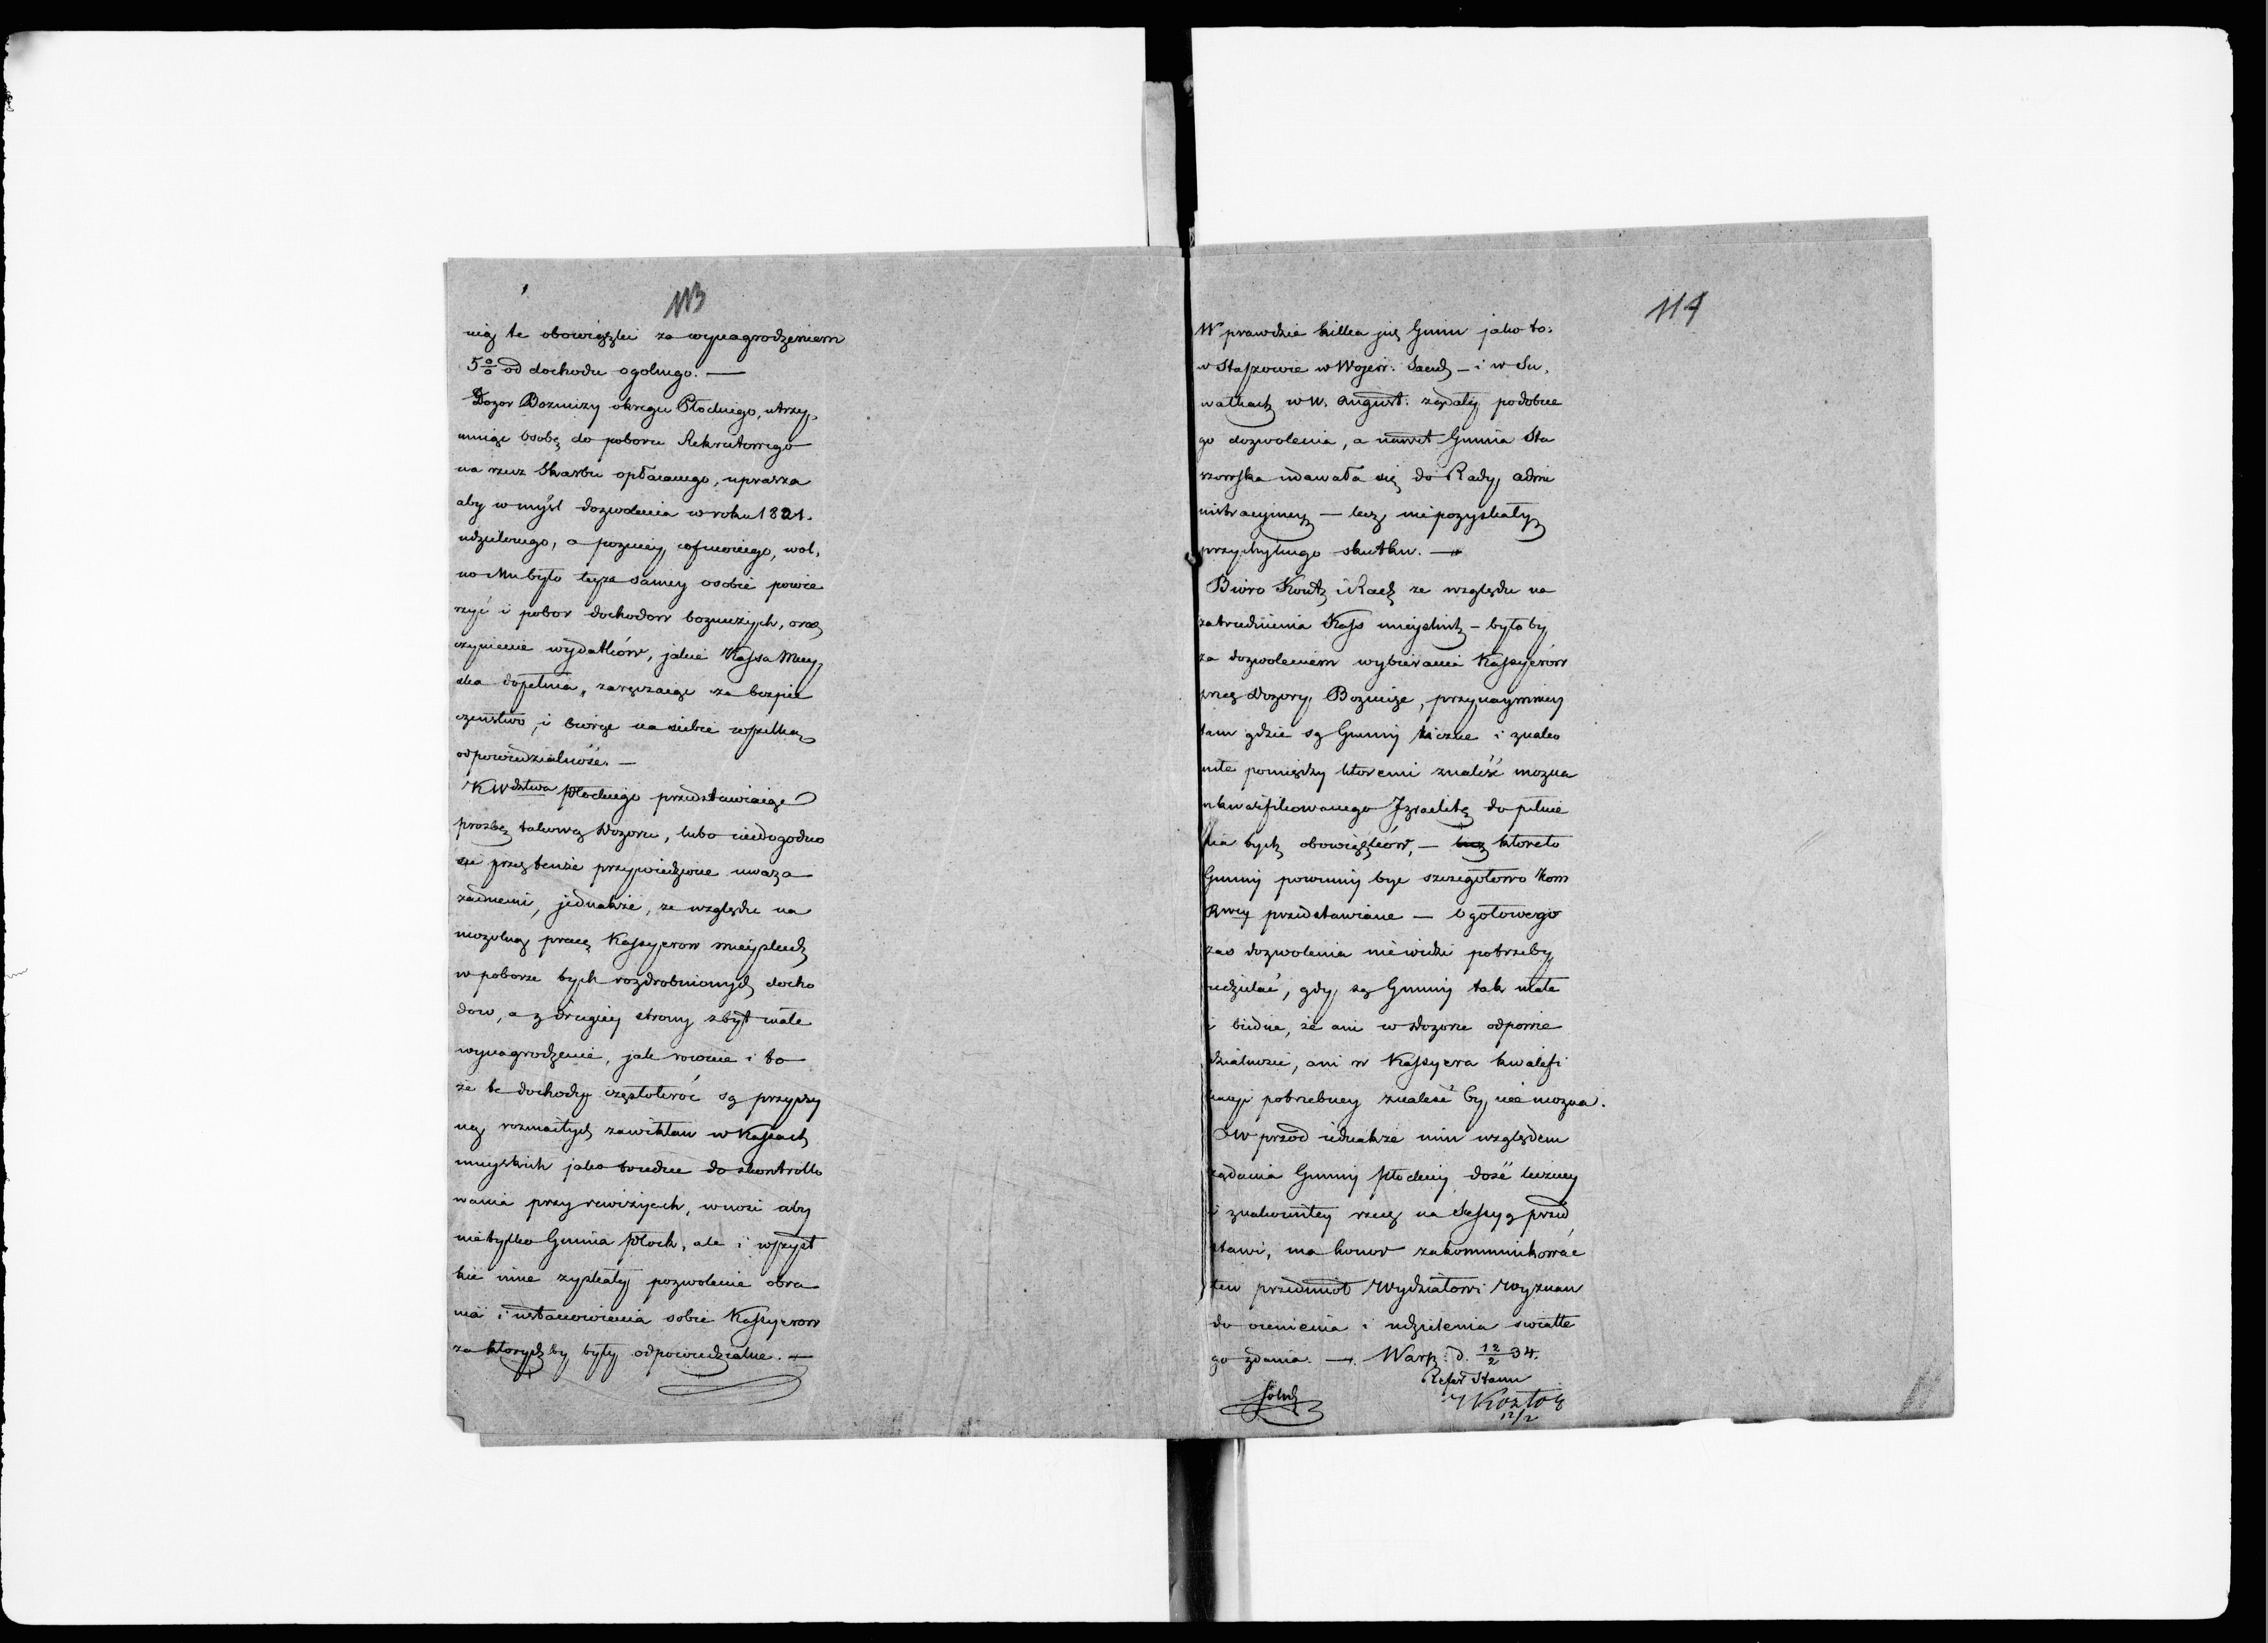 113
nią te obowiązki za wynagrodzeniem
5 o/o od dochodu ogolnego. —
Dozor Bozniczy okręgu Płockiego, utrzy,
muiąc osobę do poboru Rekrutowego
na rzecz Skarbu opłacanego, uprasza
aby w myśl dozwolenia w roku 1821.
udzielonego, a pozniey cofnionego, wol,
no Mu było teyze samey osobie powie
rzyć i pobor dochodow bozniczych, oraz
czynienie wydatków, jakie Kassa Miey,
ska dopełnia, zaręczaiąc za bezpie
czenstwo, i biorąc na siebie wszelką
odpowiedzialność. —
K W dztwa Płockiego przedstawiaiąc
prozbę takową Dozoru, lubo niedogodno
sci przez tenże przywiedzione uwaza
za , jednakże, ze względu na
mozolną pracę Kassyerow mieyskich
w poborze tych rozdrobnionych docho
dow, a z drugiey strony zbyt małe
wynagrodzenie, jak rownie i to
że te dochody częstokroć są przyczy
ną rozmaitych zawikłan w Kassach
mieyskich jako trudne do skontrollo
wania przy rewizyach, wnosi aby
nietylko Gmina Płock, ale i wszyst
kie inne zyskały pozwolenie obra
nia i ustanowienia sobie Kassyerow
za ktorych by były odpowiedzialne. —
114
W prawdzie kilka już Gmin jako to:
w Staszowie w Wojew: Sand. — i w Su,
wałkach w W. August: żądały podobne
go dozwolenia, a nawet Gmina Sta
szowska udawała się do Rady Admi
nistracyiney — lecz niepozyskały
przychylnego skutku. —
Biuro Kont. i Rach. ze względu na
zatrudnienia Kass mieyskich — byłoby
za dozwoleniem wybierania Kassyerów
przez Dozory Boznicze, przynaymniey
tam gdzie są Gminy liczne i znako
mite pomiędzy ktoremi znaleść mozna
ukwalifikowanego Izraelitę do pełnie
nia tych obowiązków, — ktoreto
Gminy powinny byc szczegołowo Kom
Rwey przedstawiane — Ogołowego
zas dozwolenia niewidzi potrzeby
udzielać, gdy są Gminy tak małe
i biedne, że ani w Dozorze odpowie
dzialnosci, ani w Kassyera kwalifi
kacyi potrzebney znaleść by nie mozna.
W przód iednakże nim względem
żądania Gminy Płockiey dość liczney
i znakomitey rzecz na Sessyą przed
stawi, ma honor zakommunikować
ten przedmiot Wydziałowi Wyznan
do ocenienia i udzielenia swiatłe
go zdania. — Warsz: d. 12/2 34.
Refer Stanu
Kozłow
12/2